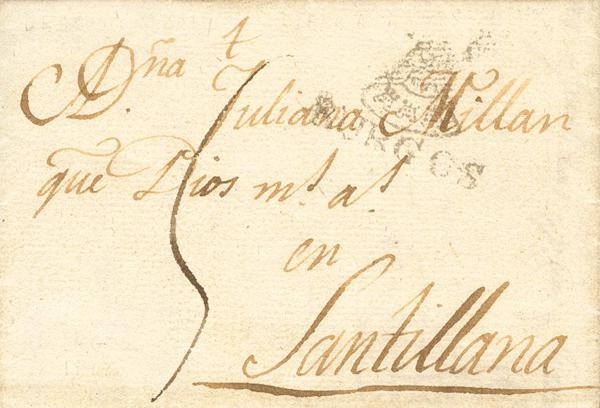 †
A Dña Juliana Millan
que Dios ms. as.
en
Santillana
5
BURGOS